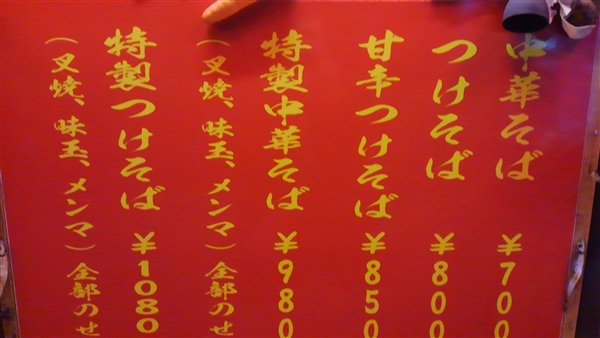 中華そば ¥700
つけそば ¥800
甘辛つけそば ¥850
特製中華そば ¥980
（叉焼、味玉、メンマ）全部のせ
特製つけそば ¥1080
（叉焼、味玉、メンマ）全部のせ